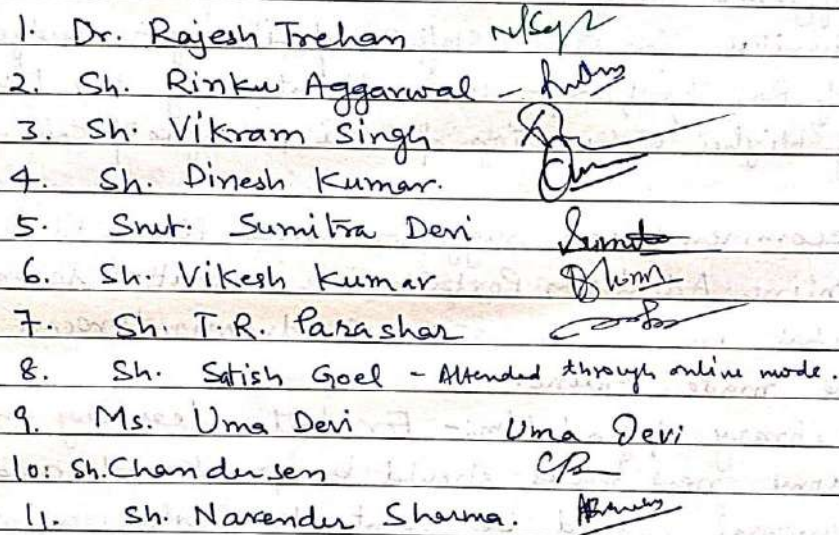 1. Dr. Rajesh Trehan
2. Sh. Rinku Aggarwal -
3. Sh. Vikram Singh
4. Sh. Dinesh Kumar.
5. Smt. Sumitra Devi
6. Sh. Vikesh Kumar
7. Sh. T.R. Parashar
8. Sh. Satish Goel - Attended through online mode.
9. Ms. Uma Devi Uma Devi
10: Sh. Chandersen
11. Sh. Narender Sharma.